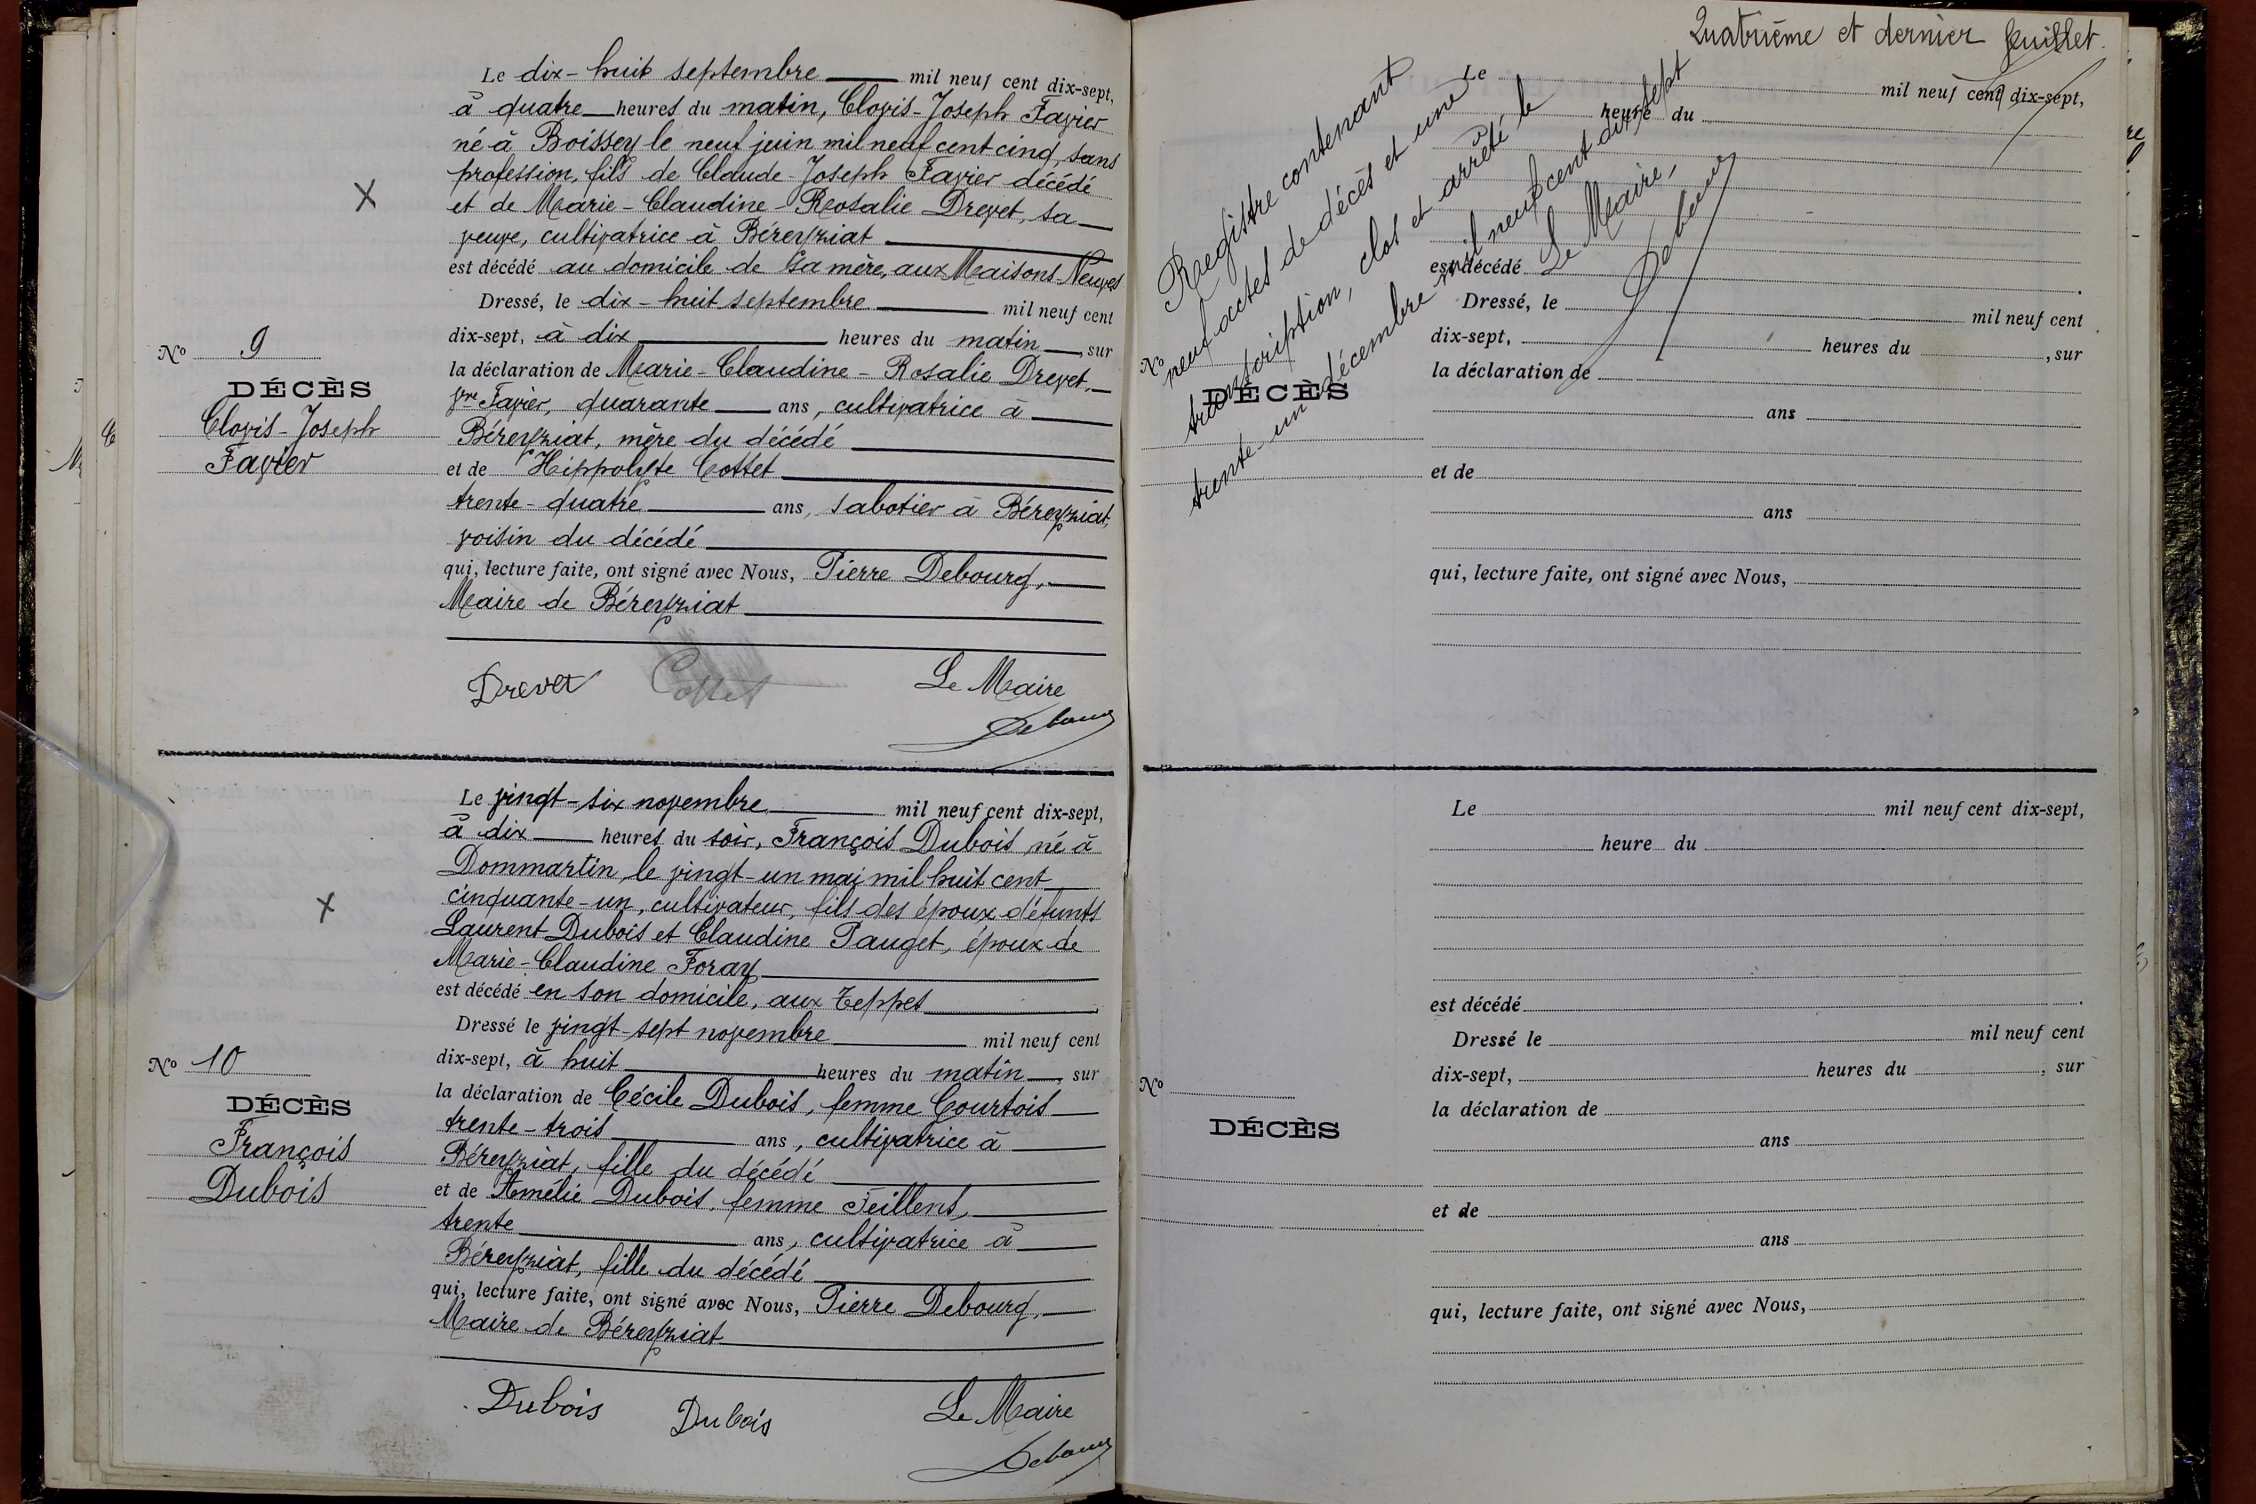 Le dix-huit septembre mil neuf cent dix-sept,
à quatre heures du matin, Clovis-Joseph Favier
né à Boissey le neuf juin mil neuf cent cinq, sans
profession, fils de Claude-Joseph Favier décédé
et de Marie-Claudine-Rosalie Drevet, sa
veuve, cultivatrice à Béreyziat
est décédé au domicile de sa mère, aux Maisons Neuves
Dressé, le dix-huit septembre mil neuf cent
dix-sept, à dix heures du matin, sur
la déclaration de Marie-Claudine-Rosalie Drevet,
vve Favier, quarante ans, cultivatrice à
Béreyziat, mère du décédé
et de Hippolyte Cottet
trente-quatre ans, sabotier à Béreyziat,
voisin du décédé
qui, lecture faite, ont signé avec Nous, Pierre Debourg,
Maire de Béreyziat
Drevet Cottet Le Maire
Debourg
No 9
DÉCÈS
Clovis-Joseph
Favier
Le vingt-six novembre mil neuf cent dix-sept,
à dix heures du soir, François Dubois né à
Dommartin, le vingt-un mai mil huit cent
cinquante-un, cultivateur, fils des époux défunts
Laurent Dubois et Claudine Pauget, époux de
Marie-Claudine Foray
est décédé en son domicile, aux Teppes
Dressé le vingt-sept novembre mil neuf cent
dix-sept, à huit heures du matin, sur
la déclaration de Cécile Dubois, femme Courtois
trente-trois ans, cultivatrice à
Béreyziat, fille du décédé
et de Amélie Dubois, femme Teillent,
trente ans, cultivatrice à
Béreyziat, fille du décédé
qui, lecture faite, ont signé avec Nous, Pierre Debourg,
Maire de Béreyziat
Dubois Dubois Le Maire
Debourg
No 10
DÉCÈS
François
Dubois
Quatrième et dernier feuillet.
Registre contenant
neuf actes de décès et une
transcription, clos et arrêté le
trente-un décembre mil neuf cent dix-sept
Le Maire,
Debourg
Le mil neuf cent dix-sept,
heure du
est décédé
Dressé, le mil neuf cent
dix-sept, heures du , sur
la déclaration de
ans
et de
ans
qui, lecture faite, ont signé avec Nous,
No
DÉCÈS
Le mil neuf cent dix-sept,
heure du
est décédé
Dressé le mil neuf cent
dix-sept, heures du , sur
la déclaration de
ans
et de
ans
qui, lecture faite, ont signé avec Nous,
No
DÉCÈS